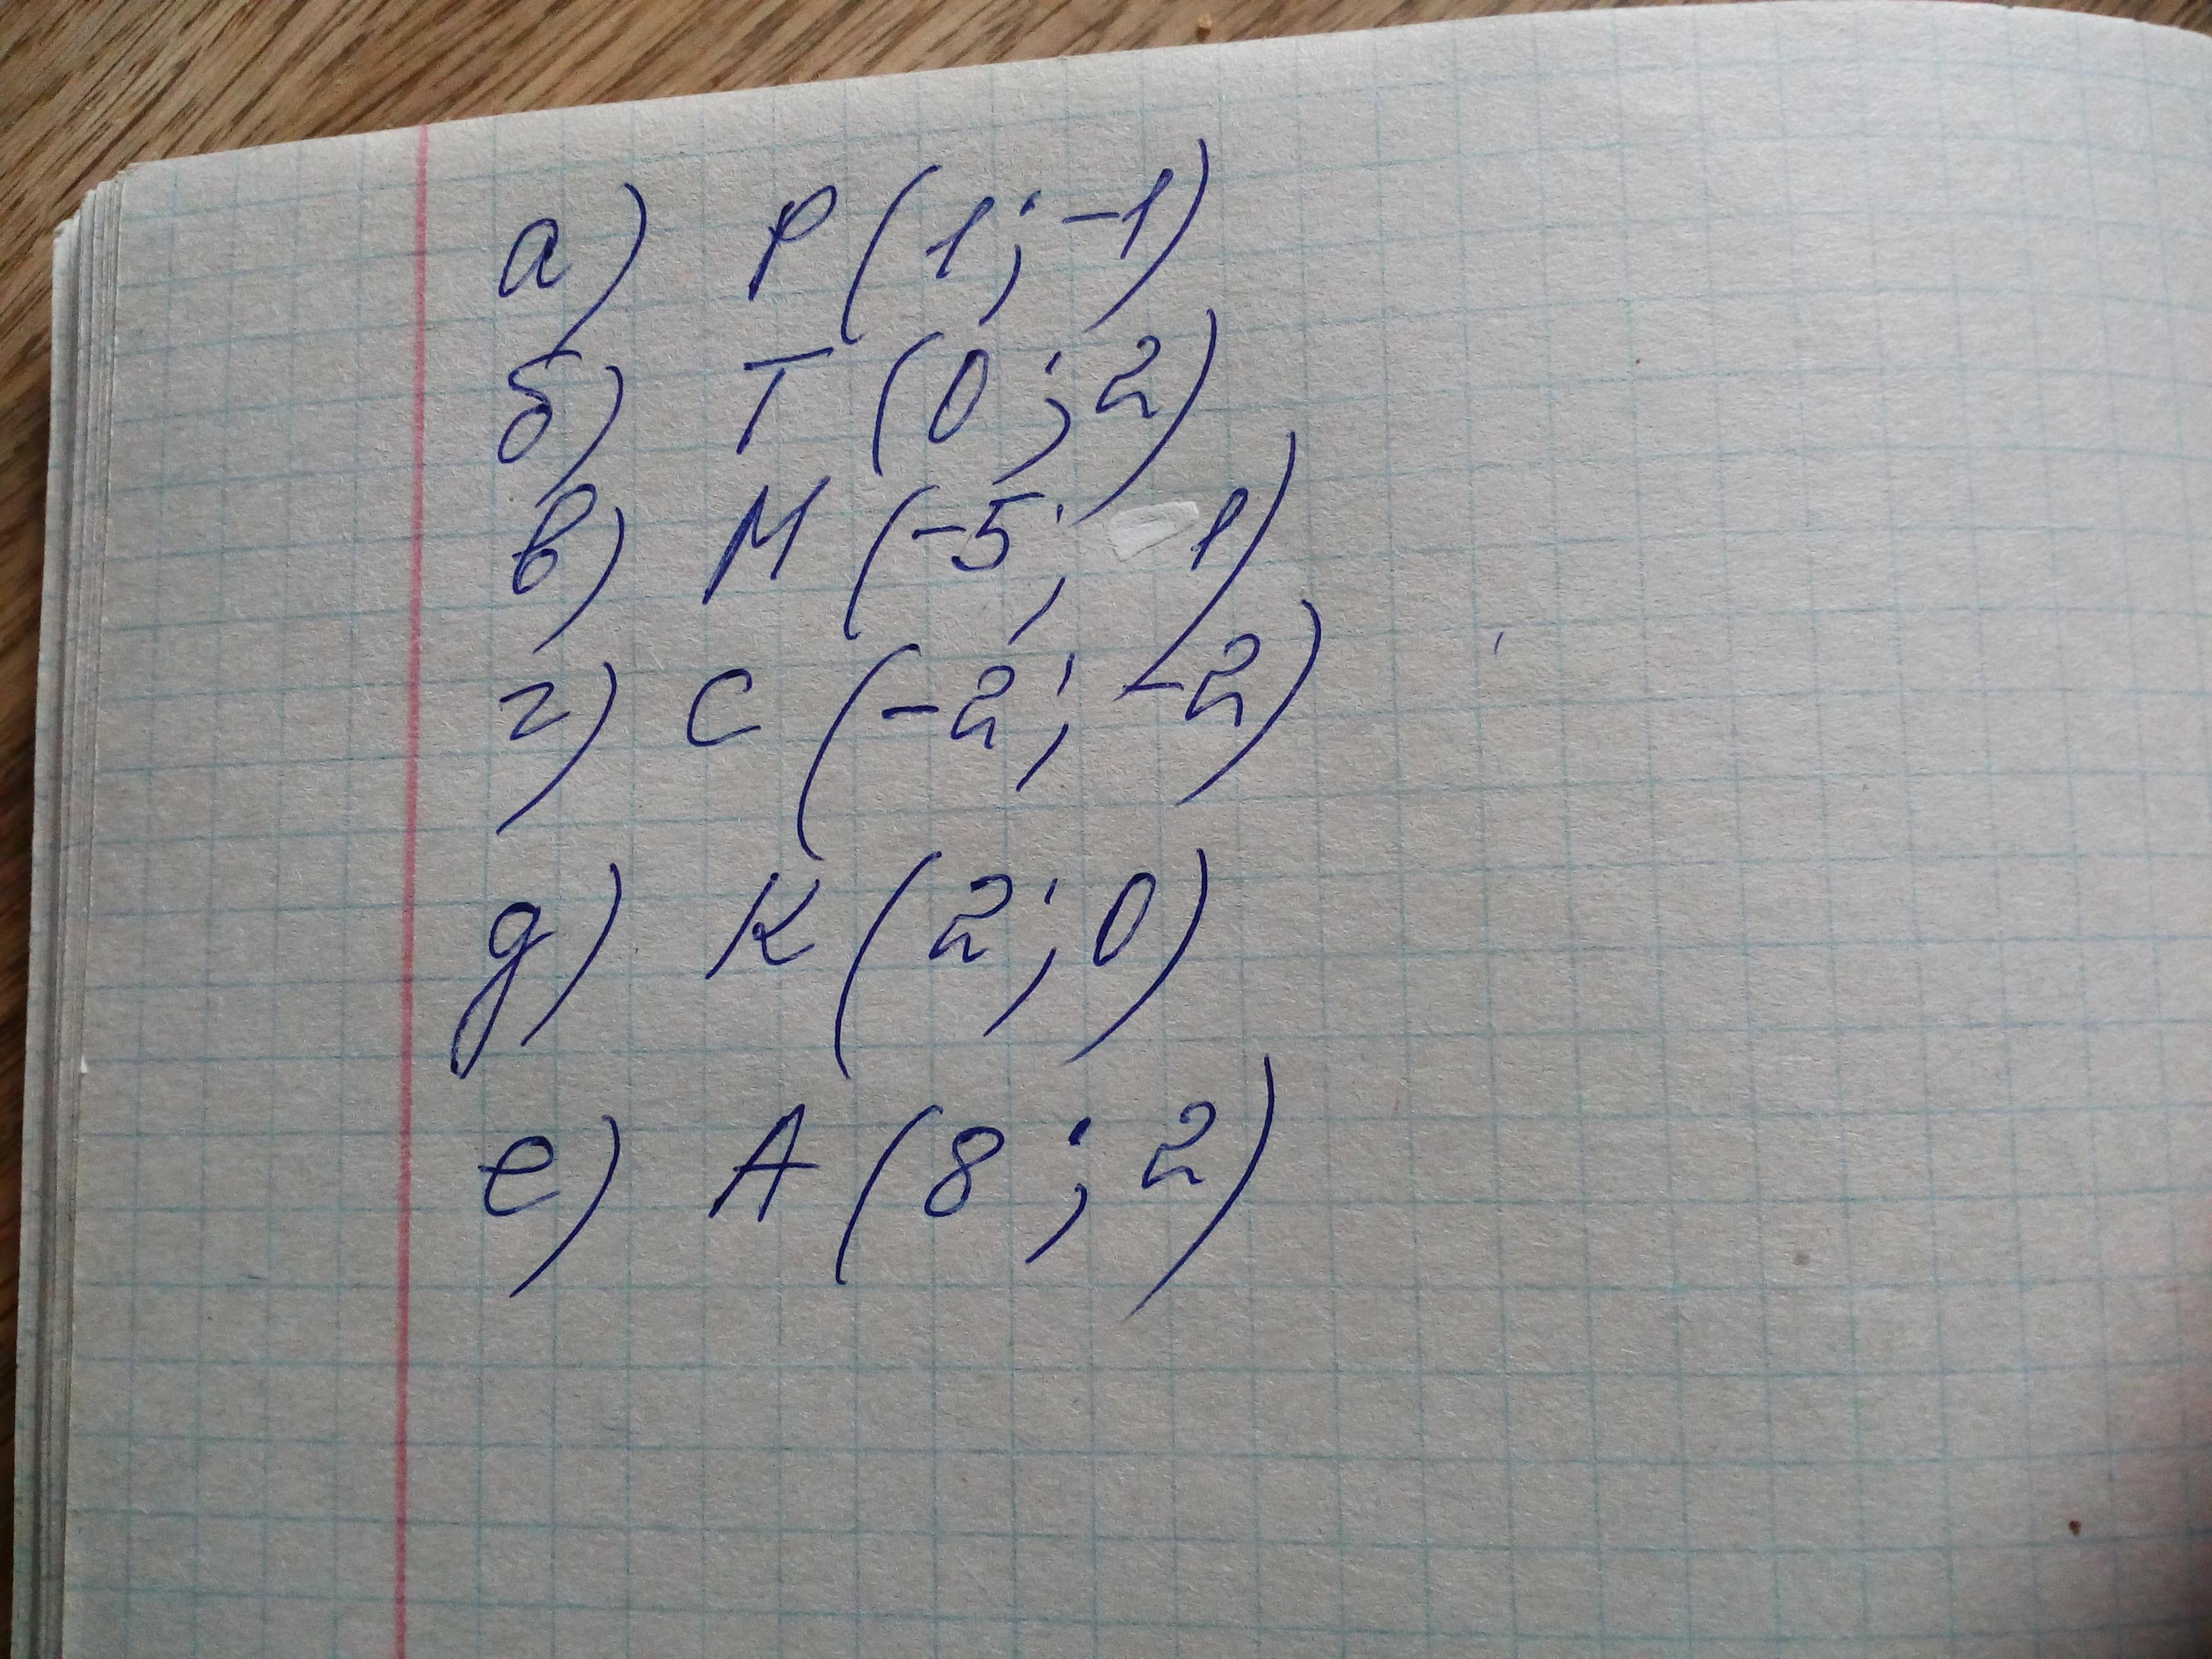 а) Р(1; -1)
б) Т(0; 2)
в) М(-5; 1)
г) С(-2; -2)
д) К(2; 0)
е) А(8; 2)